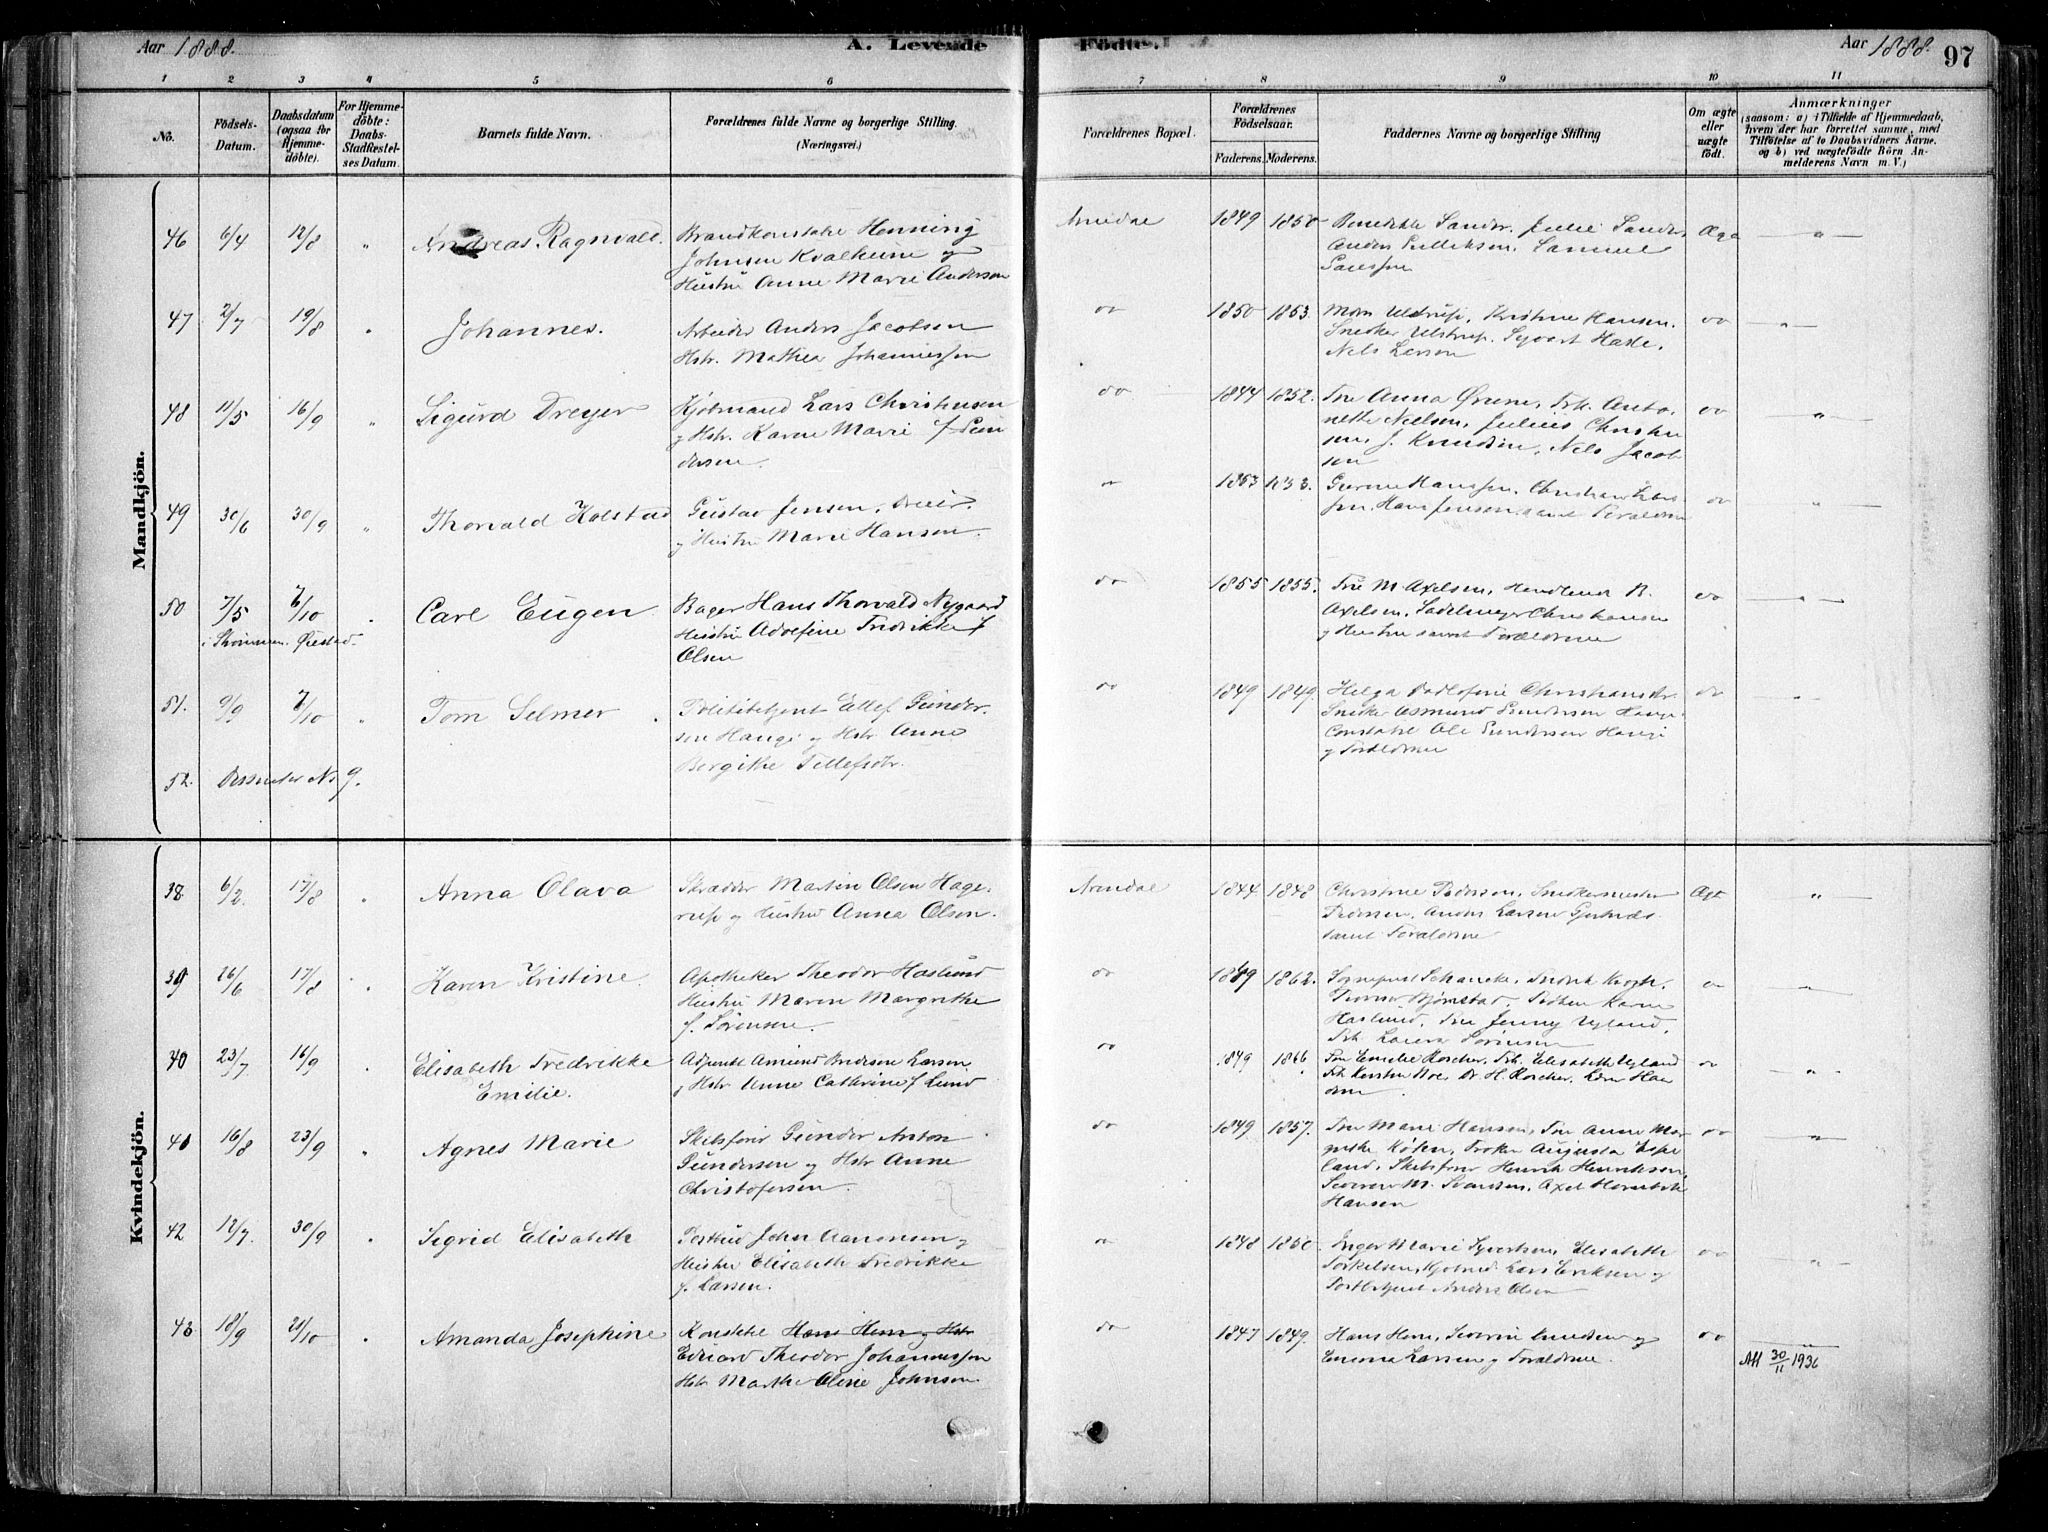 Aar 1888.
A. Levende
Födte.
Aar 1888.
97
1 2 3 4 5 6 7 8 9 10 11
No.
Födsels-Datum.
Daabsdatum (ogsaa for Hjemmedöbte).
For Hjemmedöbte: Daabs-Stadfæstelses Datum.
Barnets fulde Navn.
Forældrenes fulde Navne og borgerlige Stilling.
(Næringsvei.)
Forældrenes Bopæl.
Forældrenes Födselsaar.
Faderens. Moderens.
Faddernes Navne og borgerlige Stilling
Om ægte eller uægte födt.
Anmærkninger
(saasom: a) i Tilfælde af Hjemmedaab, hvem der har forrettet samme, med Tilföielse af to Daabsvidners Navne, og b) ved uægtefödte Börn Anmelderens Navn m. V.)
Mandkjön.
46 6/4 12/8 " Andreas Ragnvald. Brandkonstabe Henning
Johnsen Kvalheim og
Hustru Anne Marie Andersen
Arendal 1849 1850 Benedikte Sander. Julie Sander
Anders Samuel
Ægte "
47 2/7 19/8 " Johannes. Arbeider Anders Jacobsen
Hstr. Mathea Johannessen
do 1850 1853. Mom Ulstrup, Kristine Hansen.
Snedker Ulstrup. Syvert Hasle,
Nils Larsen
do "
48 11/5 16/9 " Sigurd Dreyer Kjøbmand Lars Christensen
og Hstr. Karen Marie f.
do 1844 1852. Fru Anna Frk. Anto-
nette Nielsen, Julius Christen
sen, J. Knudsen, Nils Jacob
sen
do "
49 30/6 30/9 " Thorvald Kolstad Gustav Jensen, Dreier.
og Hustru Marie Hansen.
do 1853 Hanssen, Christian
Hans Jensen samt Forældrene
do "
50 7/5 7/10 " Carl Eugen Bager Hans Thorvald Nygaard
Hustru Adolfine Fredrikke f
Olsen
i Øiestad.
do 1855 1855. Fru M. Axelsen, B.
Axelsen, Sadelmager Christiansen
og Hustru samt Forældrene
do "
51. 9/9 7/10 " Tom Selmer. Politibetjent Ellef Gunder-
sen Hauge og Hstr. Anne
Bergithe Tellefsdtr.
do 1849 1849. Helga Christiansdtr.
Snedker Asmund Gundersen Hauge
Constabel Ole Gundersen Hauge
og Forældrene
do "
52. No 9.
Kvindekjön.
38. 6/2. 17/8 " Anna Olava Skrædder Martin Olsen Hage-
rup og Hustru Anna Olsen.
Arendal 1844. 1848 Christine Pedersen, Snedkermester
Pedersen, Anders Larsen
samt Forældrene
Ægt "
39 26/6 17/8 " Karen Kristine. Apotheker Theodor Haslund
Hustru Maren Margrethe
f. Sørensen.
do 1849 1862. Schancke,
Bjørnstad, Karen
Haslund, Fru Jenny Ugland,
Frk Laura Sørensen
"
40 23/7 16/9 " Elisabeth Fredrikke
Emilie.
Adjunkt Amund Larsen
og Hstr Anne Cathrine f. Lund
do 1849 1866 Fru Emilie Roscher, Frk. Elisabeth Ugland
Frk Kirsten Dr. H. Roscher,
do "
41 16/8 23/9 " Agnes Marie Skibsfører Gunder Anton
Gundersen og Hstr Anne
Christofersen.
do 1849 1857. Fru Marie Hansen, Fru Anne Mar
grethe Frøken Augusta Espe
land, Skibsfører Henrik Henriksen,
Severin M. Svensen, Axel
Hansen
do "
42 12/7. 30/9 " Sigrid Elisabeth Postbud John Aanonsen og
Hustru Elisabeth Fredrikke
f. Larsen.
do 1848 1850. Inger Marie Syvertsen, Elisabeth
Torkelsen, Kjøbmd Lars Eriksen og
Anders Olsen
do "
43 18/9 21/10 " Amanda Josephine Konstabel Hans Horn og Hstr
Edvard Theodor Johannessen
Hstr Marthe Oline Johnsen.
do 1847 1849. Hans Horn, Severin Knudsen og
Emma Larsen og Forældrene.
do "
Att 30/11 1936